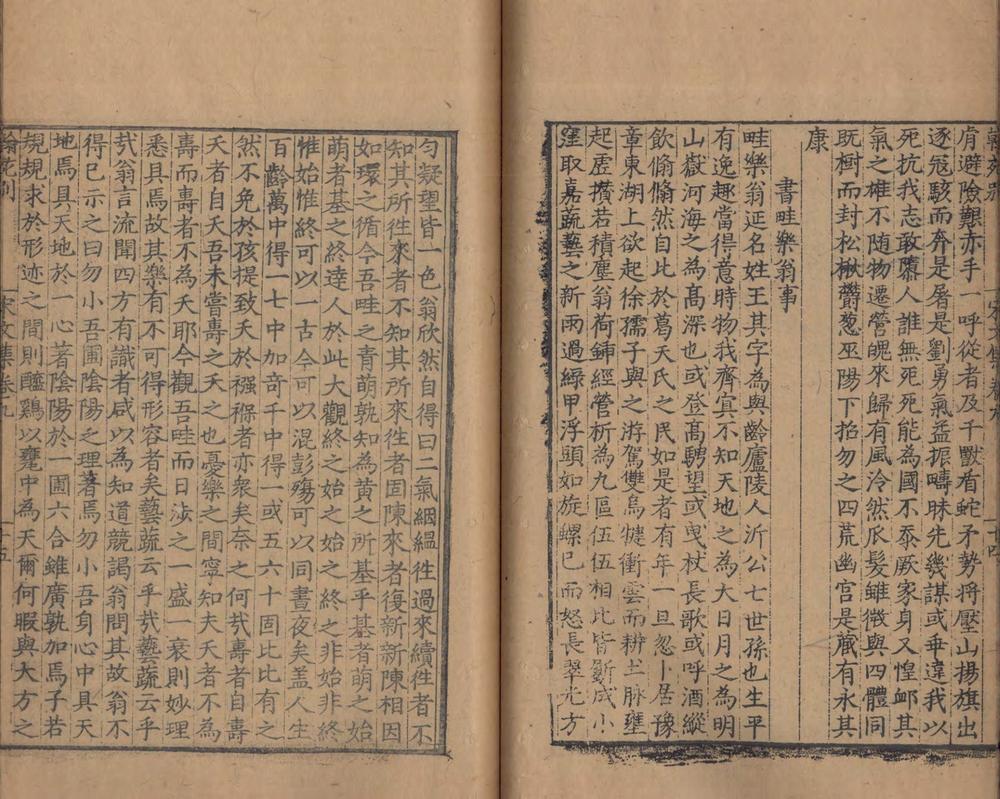 肩避險艱赤手一呼從者及千獸盾蛇矛勢將壓山揚旗出
逐冦駭而奔是屠是劉勇氣益振疇昧先幾謀或垂違我以
死抗我志敢隳人誰無死死能為國不忝厥家身又惶䘏其
氣之雄不随物遷營魄來歸有風泠然爪髮雖微與四體同
既樹而封松楸欝葱巫陽下招勿之四荒幽宫是藏有永其
康
書畦樂翁事
畦樂翁延名姓王其字為與齡廬陵人沂公七世孫也生平
有逸趣當得意時物我齊寘不知天地之為大日月之為明
山嶽河海之為髙深也或登髙騁望或曳杖長歌或呼酒縱
飲翛翛然自比於葛天氏之民如是者有年一旦忽卜居豫
章東湖上欲起徐孺子與之游駕雙烏犍衝雲而耕土脉壅
起虚攢若積塵翁荷鍤經營析為九區伍伍相比皆斵成小
窪取嘉蔬藝之新雨過緑甲浮頭如旋螺已而怒長翠光方
勻凝望皆一色翁欣然自得曰二氣絪緼徃過來續徃者不
知其所徃來者不知其所來徃者固陳來者復新新陳相因
如環之循今吾畦之青萌孰知為黄之所基乎基者萌之始
萌者基之終達人於此大觀終之始之始之終之非始非終
惟始惟終可以一古今可以混彭殤可以同晝夜矣盖人生
百齡萬中得一七中加竒千中得一或五六十固比比有之
然不免於孩提致夭於襁褓者亦衆矣奈之何㢤壽者自壽
夭者自夭吾未嘗壽之夭之也憂樂之間寧知夫夭者不為
壽而壽者不為夭耶今觀吾畦而日渉之一盛一衰則妙理
悉具焉故其樂有不可得形容者矣藝蔬云乎㢤藝蔬云乎
㢤翁言流聞四方有識者咸以為知道競謁翁問其故翁不
得已示之曰勿小吾圃隂陽之理著焉勿小吾身心中具天
地焉具天地於一心著隂陽於一圃六合雖廣孰加焉子若
規規求於形迹之間則醯鷄以甕中為天爾何暇與大方之